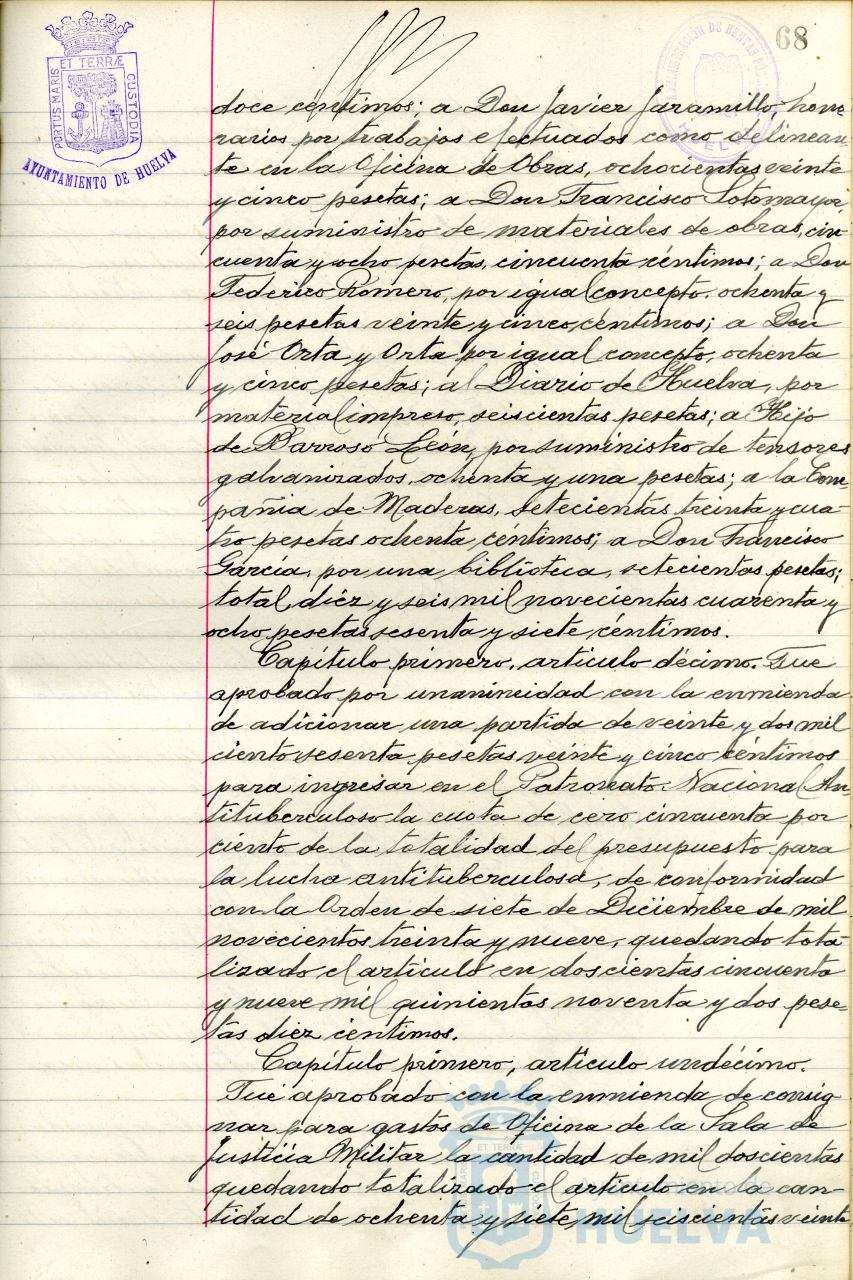 68
PORTUS MARIS ET TERRÆ CUSTODIA
AYUNTAMIENTO DE HUELVA
doce céntimos; a Don Javier Jaramillo, hono-
rarios por trabajos efectuados como delinean-
te en la Oficina de Obras, ochocientas veinte
y cinco pesetas; a Don Francisco Sotomayor
por suministro de materiales de obras, cin-
cuenta y ocho pesetas, cincuenta céntimos; a Don
Federico Romero, por igual concepto, ochenta y
seis pesetas veinte y cinco, céntimos; a Don
José Orta y Orta por igual concepto, ochenta
y cinco pesetas; al Diario de Huelva, por
material impreso, seiscientas pesetas; a Hijo
de Barroso León, por suministro de tensores
galvanizados, ochenta y una pesetas; a la Com-
pañia de Maderas, setecientas treinta y cua-
tro pesetas ochenta céntimos; a Don Francisco
García, por una biblioteca, setecientas pesetas;
total, diez y seis mil novecientas cuarenta y
ocho pesetas sesenta y siete céntimos.
Capítulo primero, artículo décimo. Fue
aprobado por unanimidad con la enmienda
de adicionar una partida de veinte y dos mil
ciento sesenta pesetas veinte y cinco céntimos
para ingresar en el Patronato Nacional An-
tituberculoso la cuota de cero cincuenta por
ciento de la totalidad del presupuesto para
la lucha antituberculosa, de conformidad
con la Orden de siete de Diciembre de mil
novecientos treinta y nueve, quedando tota-
lizado el artículo en doscientas cincuenta
y nueve mil quinientas noventa y dos pese-
tas diez céntimos.
Capítulo primero, artículo undécimo.
Fué aprobado con la enmienda de consig-
nar para gastos de Oficina de la Sala de
Justicia Militar la cantidad de mil doscientas
quedando totalizado el artículo en la can-
tidad de ochenta y siete mil seiscientas veinte
Ayuntamiento de
HUELVA